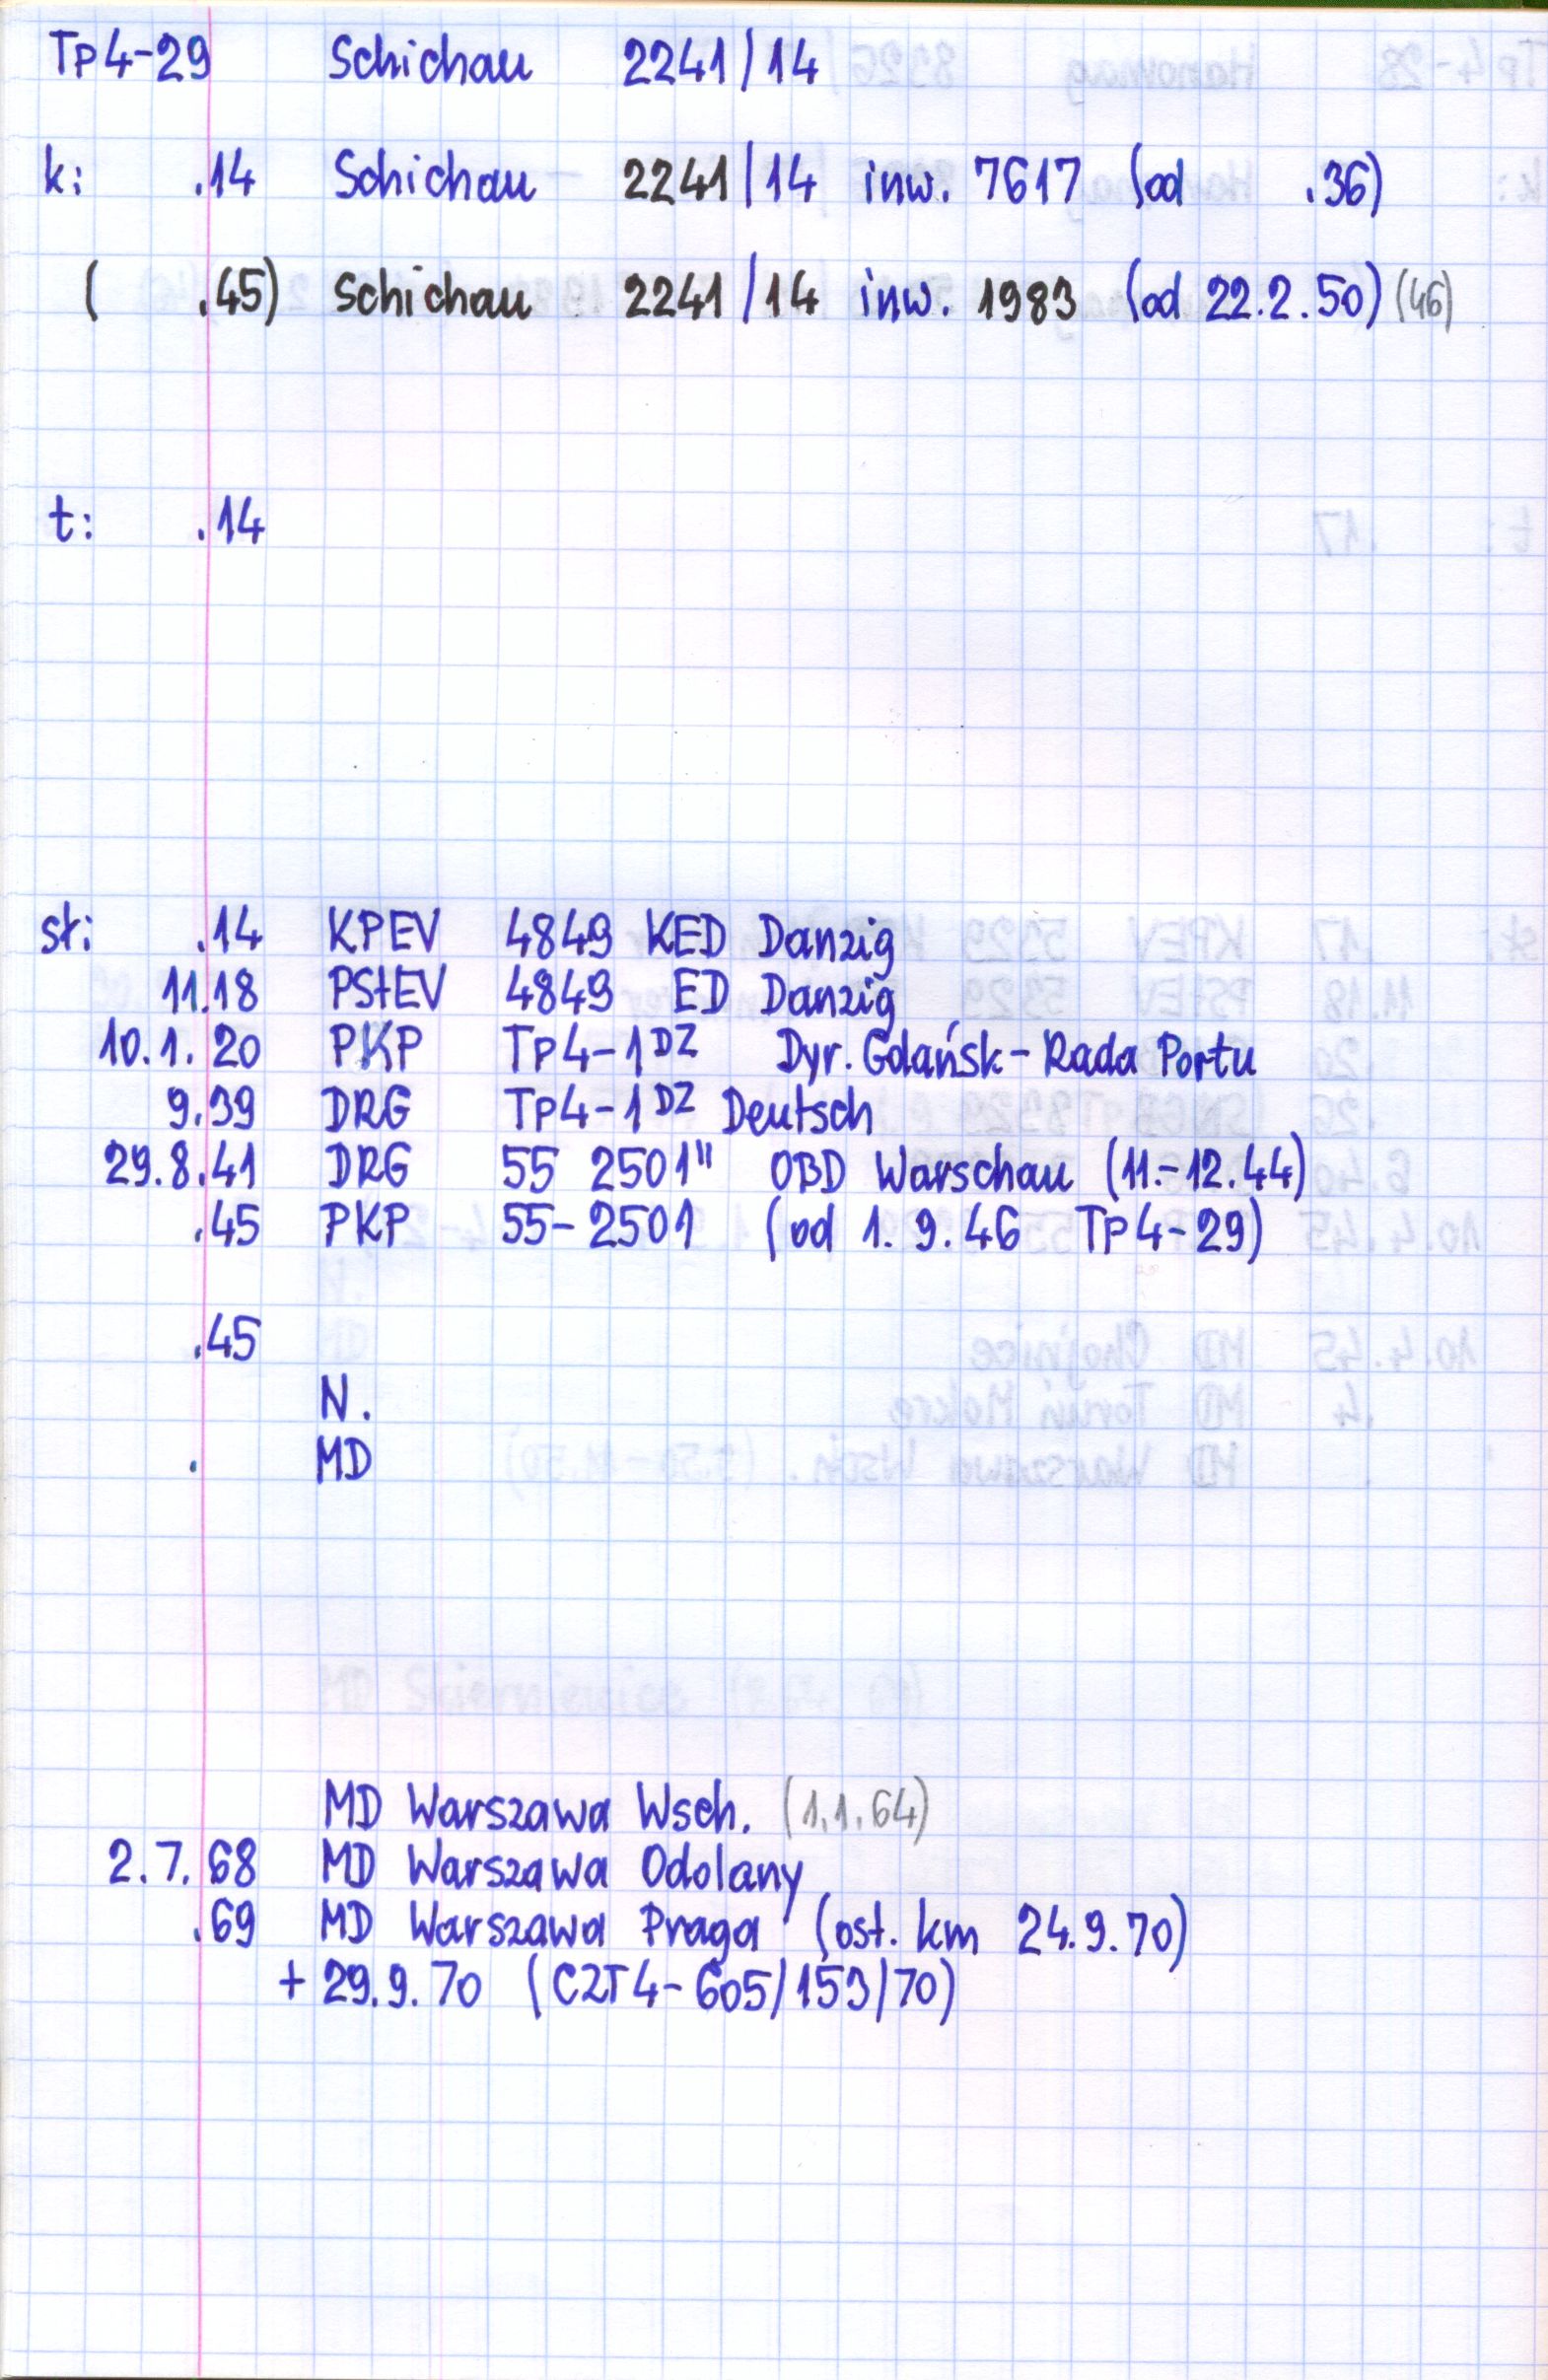 Tp4-29 Schichau 2241/14
k: .14 Schichau 2241/14 inw. 7617 (od .36)
( .45) Schichau 2241/14 inw. 1983 (od 22.2.50) (46)
t: .14
st: .14 KPEV 4849 KED Danzig
11.18 PStEV 4849 ED Danzig
10.1.20 PKP Tp4-1DZ Dyr. Gdańsk-Rada Portu
9.39 DRG Tp4-1DZ Deutsch
29.8.41 DRG 55 2501" OBD Warschau (11.-12.44)
.45 PKP 55-2501 (od 1.9.46 Tp4-29)
.45
N.
. MD
MD Warszawa Wsch. (1.1.64)
2.7.68 MD Warszawa Odolany
.69 MD Warszawa Praga (ost. km 24.9.70)
+ 29.9.70 (CZT4-605/153/70)